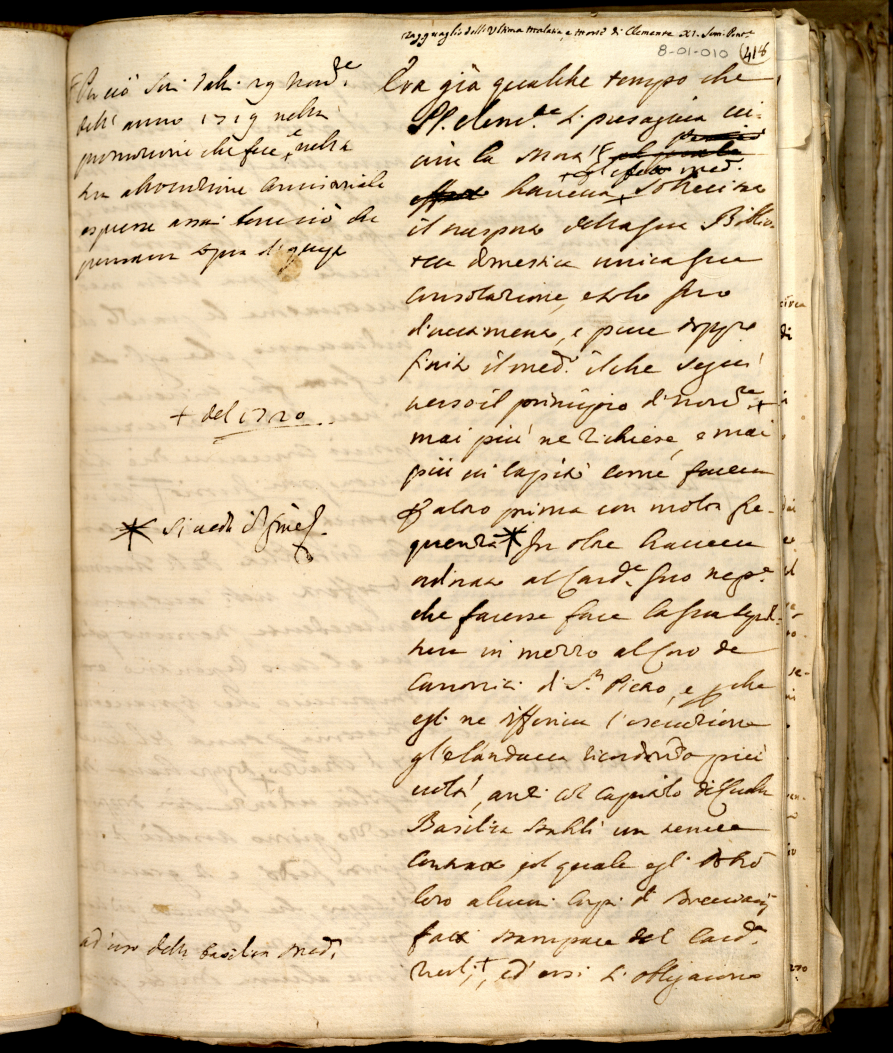 Ragguaglio dell'Ultima malatia, e morte di Clemente XI. Som. Pont.e
8-01-010 (418
Perciò sin dalli 29 Nov.e
dell'anno 1719 nella
promozione che fece, nella
sua allocuzione Concistoriale
espresse assai
+ del 1720
* Si veda il
ad uso della Basilica med.
Era già qualche tempo che
P. Clem.te si presagiva vi-
cina la morte
haveva sollecitare
il trasporto della sua Biblio-
teca domestica unica sua
consolazione, e solo suo
e pure doppo
finito il med.o il che seguì
verso il principio di Nov.e +
mai più ne richiese, e mai
più vi capitò come faceva
p altro prima con molta fre-
quenza * In oltre haveva
ordinato al Card.e suo nep.e
che facesse fare la sua sepol-
tura in mezzo al Coro de
Canonici di S. Pietro, e p che
egli ne differiva l'esecuzione
gle l'andava ricordando più
volte, anzi col Capitolo di quella
Basilica stabilì un
contratto pel quale egli
loro alcuni Corpi di Breviarij
fatti stampare dal Card.
+, ed essi si obligarono